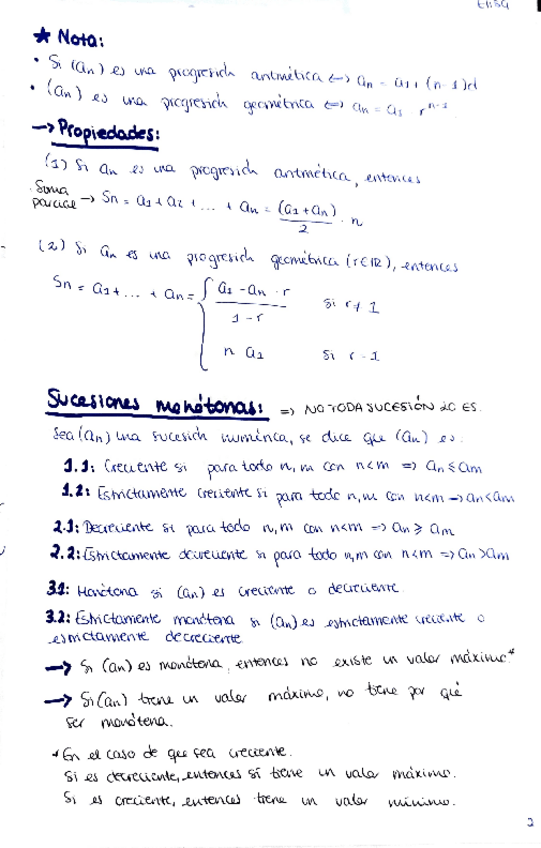 Elisa
★ Nota:
• Si (an) es una progresión aritmética ↔ an = a1 + (n-1)d
• (an) es una progresión geométrica ⇔ an = a1 · r^n-1
→ Propiedades:
(1) Si an es una progresión aritmética, entences
Suma
parcial → Sn = a1 + a2 + ... + an = (a1+an)/2 · n
(2) Si an es una progresión geométrica (r∈ℝ), entences
Sn = a1 + ... + an = { a1 - an · r / 1 - r si r ≠ 1
n a1 si r = 1
Sucesiones monótonas: => NO TODA SUCESIÓN LO ES.
Sea (an) una sucesión numérica, se dice que (an) es:
1.1: Creciente si para todo n, m con n<m => an ≤ am
1.2: Estrictamente creciente si para todo n, m con n<m → an<am
2.1: Decreciente si para todo n, m con n<m => an ≥ am
2.2: Estrictamente decreciente si para todo n, m con n<m => an > am
3.1: Monótona si (an) es creciente o decreciente.
3.2: Estrictamente monótona si (an) es estrictamente creciente o
estrictamente decreciente
→ Si (an) es monótona, entonces no existe un valor máximo*
→ Si (an) tiene un valor máximo, no tiene por qué
ser monótona.
* En el caso de que sea creciente.
Si es decreciente, entonces sí tiene un valor máximo.
Si es creciente, entonces tiene un valor mínimo.
2